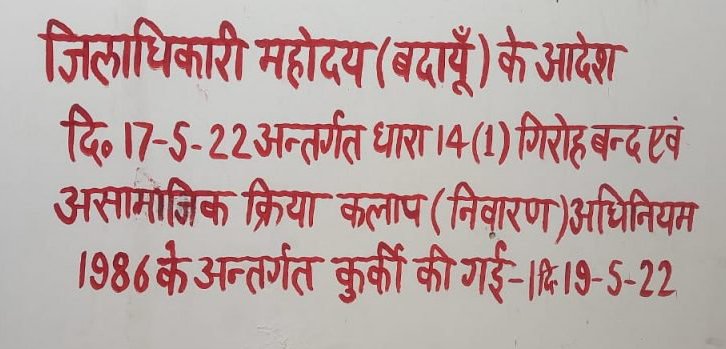 जिलाधिकारी महोदय (बदायूँ) के आदेश
दि० 17-5-22 अन्तर्गत धारा 14(1) गिरोह बन्द एवं
असामाजिक क्रिया कलाप (निवारण) अधिनियम
1986 के अन्तर्गत कुर्की की गई-। दि. 19-5-22